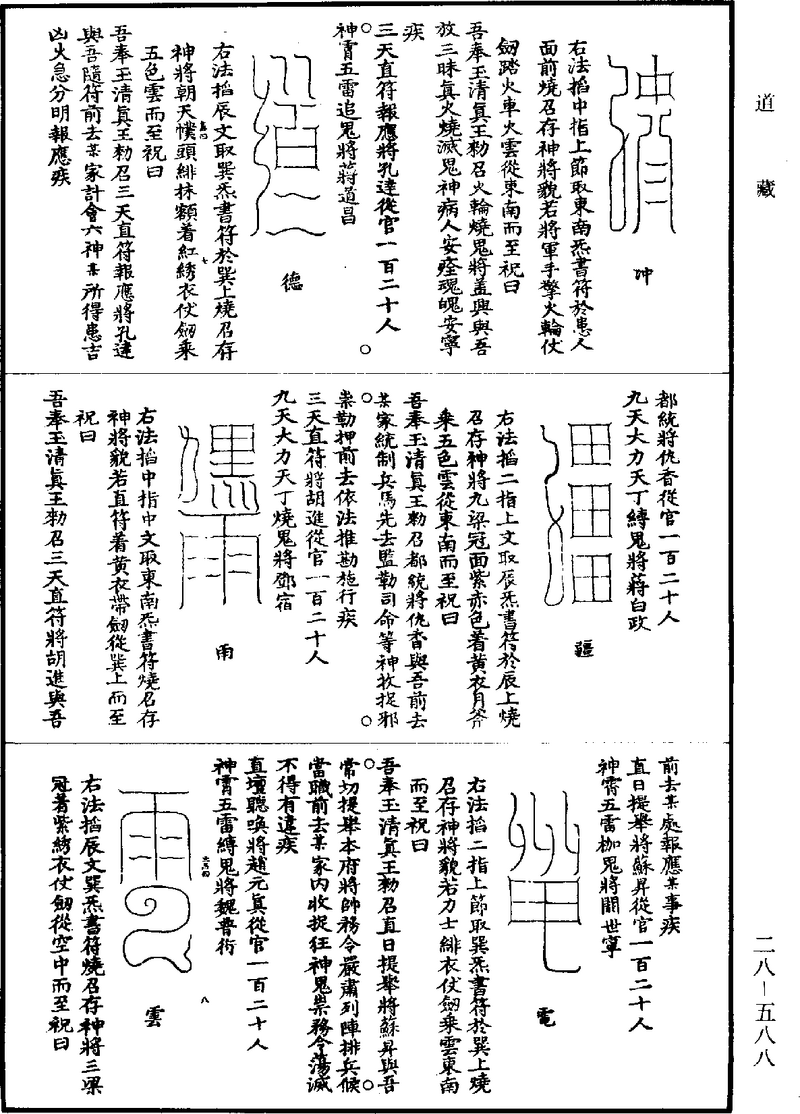 道藏
冲
右法掐中指上節取東南炁書符於患人
面前燒召存神將貌若將軍手擎火輪仗
劒踏火車火雲從東南而至祝曰
吾奉玉清眞王勑召火輪燒鬼將盖興與吾
放三昧眞火燒滅鬼神病人安痊魂魄安寧
疾
三天直符報應將孔達從官一百二十人
神霄五雷追鬼將蔣道昌
德
右法掐辰文取巽炁書符於巽上燒召存
神將朝天幞頭緋抹額着紅綉衣仗劒乘
五色雲而至祝曰
吾奉玉清眞王勑召三天直符報應將孔達
與吾隨符前去某家計會六神某所得患吉
凶火急分明報應疾
都統將仇香從官一百二十人
九天大力天丁縳鬼將蔣白政
疆
右法掐二指上文取辰炁書符於辰上燒
召存神將九梁冠面紫赤色着黃衣月斧
乘五色雲從東南而至祝曰
吾奉玉清眞王勑召都統將仇香與吾前去
某家統制兵馬先去監勒司命等神收捉邪
祟勒押前去依法推勘施行疾
三天直符將胡進從官一百二十人
九天大力天丁燒鬼將鄧宿
雨
右法掐中指中文取東南炁書符燒召存
神將貌若直符着黃衣帶劒從巽上而至
祝曰
吾奉玉清眞王勑召三天直符將胡進與吾
前去某處報應某事疾
直日提舉將蘇昇從官一百二十人
神霄五雷枷鬼將關世寧
電
右法掐二指上節取巽炁書符於巽上燒
召存神將貌若力士緋衣仗劒乘雲東南
而至祝曰
吾奉玉清眞王勑召直日提舉將蘇昇與吾
常切提舉本府將帥務令嚴肅列陣排兵候
當職前去某家內收捉狂神鬼祟務令蕩滅
不得有違疾
直壇聽喚將趙元眞從官一百二十人
神霄五雷縳鬼將魏晋衎
八
雲
右法掐辰文巽炁書符燒召存神將三梁
冠着紫綉衣仗劒從空中而至祝曰
二八－五八八